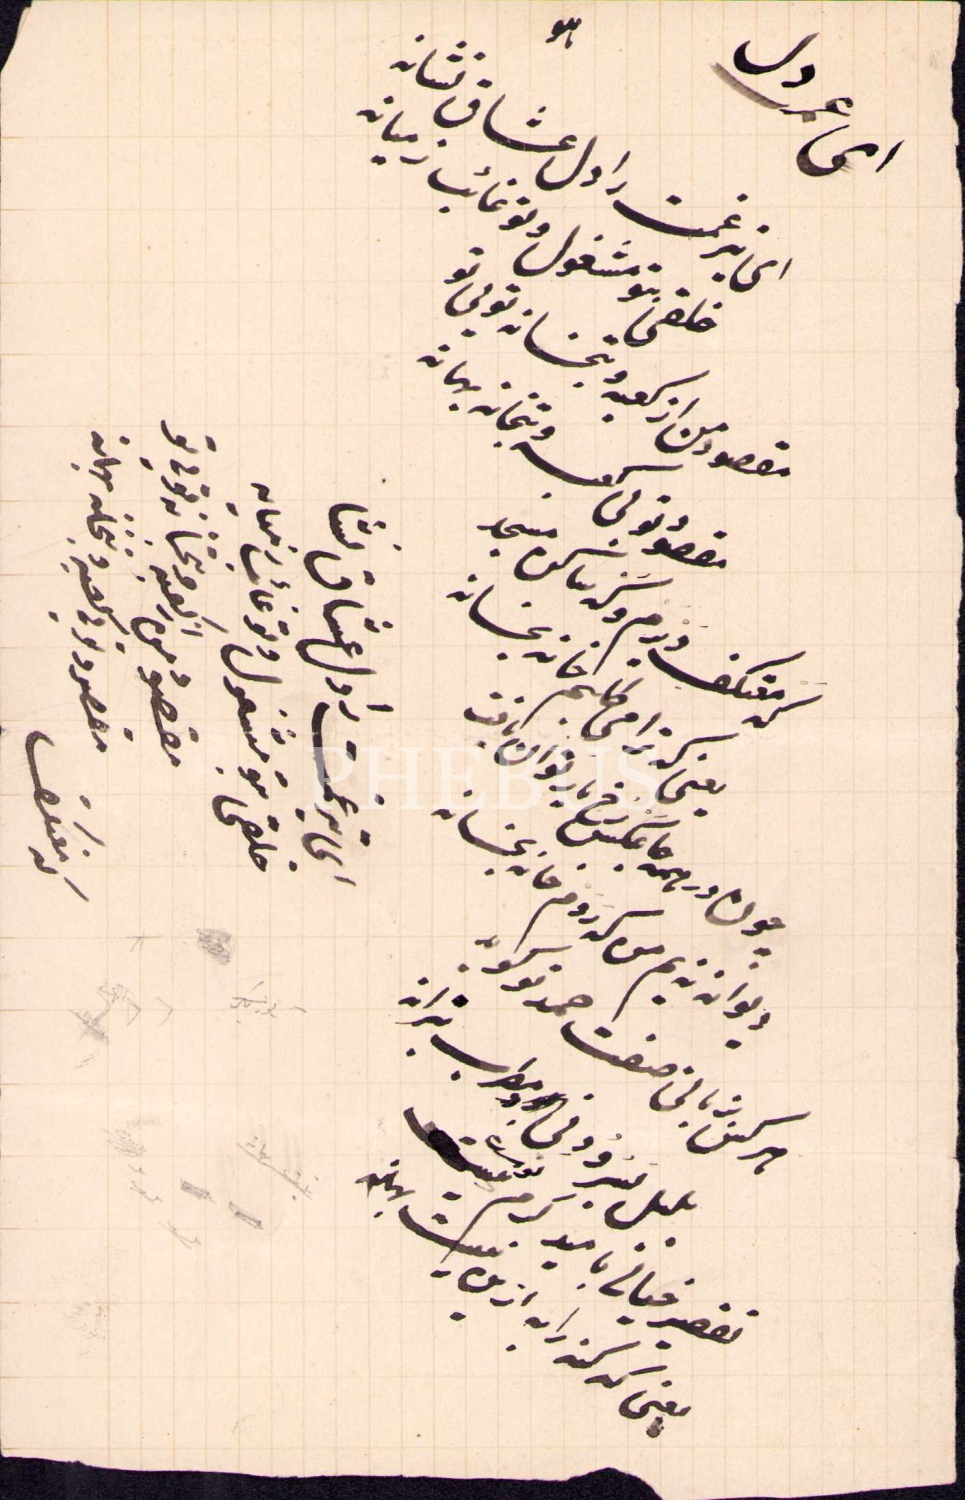 هو
ای تیر غمت را دل عشاق نشانه
خلقی بتو مشغول و تو غائب ز میانه
مقصود من از کعبه و بتخانه توئی تو
مقصود توئی کعبه و بتخانه بهانه
که معتکف دیرم و که ساکن مسجد
یعنی که ترا می طلبم خانه بخانه
چون در همه جا عکس رخ یار توان یافت
دیوانه نیم من که روم خانه بخانه
هر کس بزبانی صفت حمد تو گوید
بلبل بسرود نی و مطرب بترانه
تقصیر خیالی بامید کرم تست
یعنی که گنه را به ازین نیست بهانه
ای تیر غمت را دل عشاق نشا
خلقی بتو مشغول و تو غائب ز میانه
مقصود من از کعبه و بتخانه توئی تو
مقصود توئی کعبه و بتخانه بهانه
که معتکف
PHEBUS